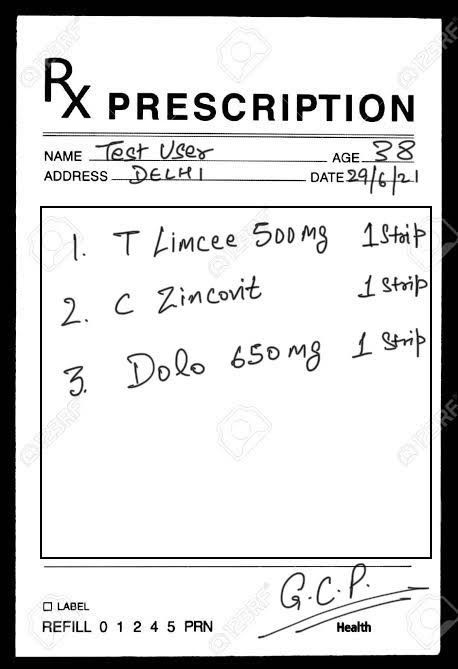 Rx PRESCRIPTION
NAME Test User AGE 38
ADDRESS DELHI DATE 29/6/21
1. T Limcee 500mg 1 Strip
2. C Zincovit 1 Strip
3. Dolo 650mg 1 Strip
G.C.P.
☐ LABEL
REFILL 0 1 2 4 5 PRN Health
123RF